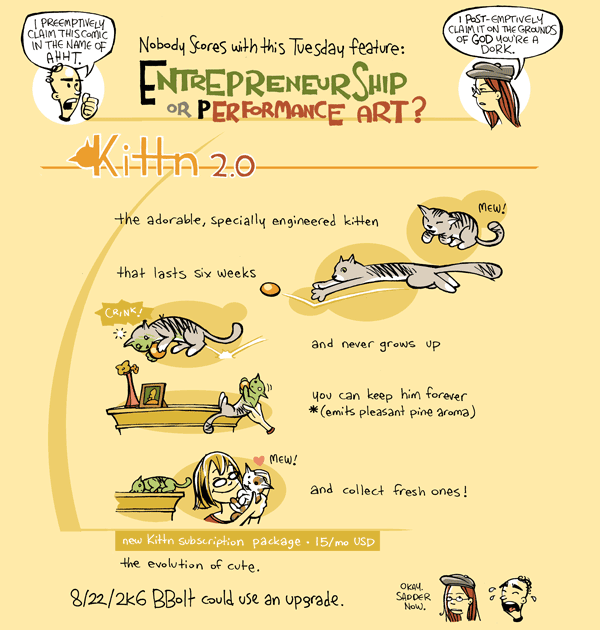 I PREEMPTIVELY
CLAIM THIS COMIC
IN THE NAME OF
AHHT.
I POST-EMPTIVELY
CLAIM IT ON THE GROUNDS
OF GOD YOU'RE A
DORK.
Nobody Scores with this Tuesday feature:
ENTREPRENEURSHIP
OR PERFORMANCE ART?
Kittn 2.0
the adorable, specially engineered kitten
MEW!
that lasts six weeks
CRINK!
and never grows up
you can keep him forever
*(emits pleasant pine aroma)
MEW!
and collect fresh ones!
new Kittn subscription package • 15/mo USD
the evolution of cute.
8/22/2K6 BBolt could use an upgrade.
OKAY.
SADDER
NOW.